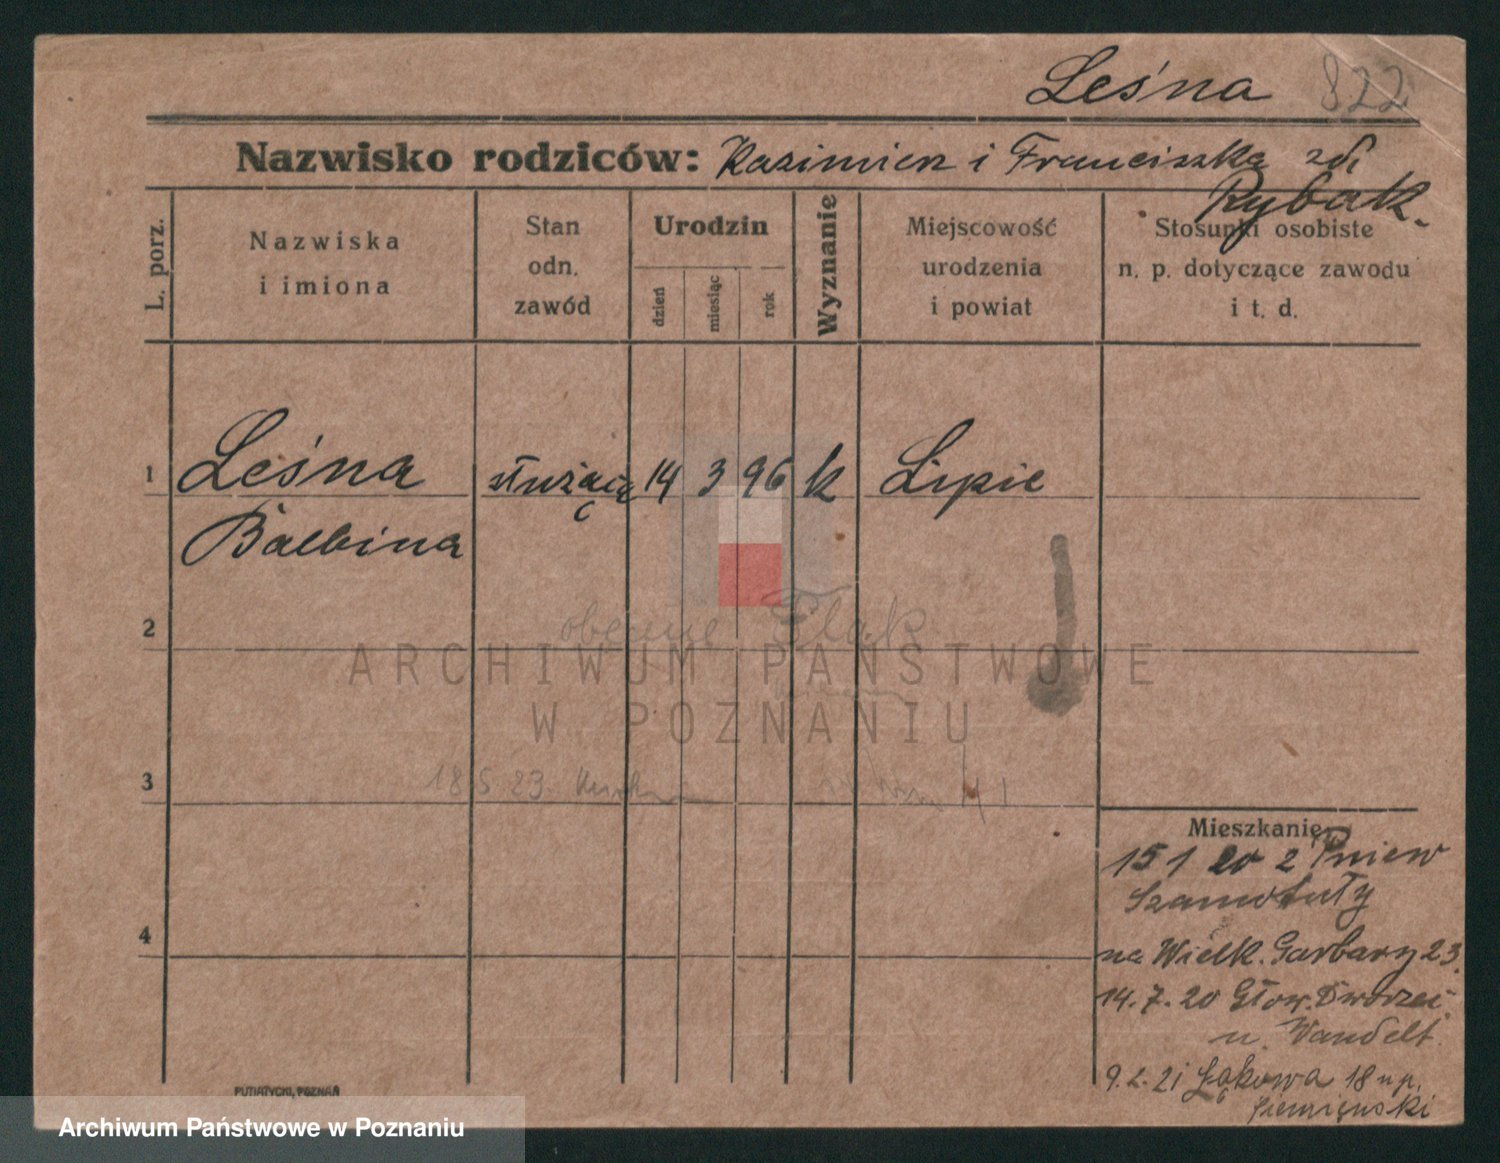 Leśna 822
Nazwisko rodziców: Kazimierz i Franciszka zd.
Rybak.
L. porz.
Nazwiska
i imiona
Stan
odn.
zawód
Urodzin
dzień
miesiąc
rok
Wyznanie
Miejscowość
urodzenia
i powiat
Stosunki osobiste
n. p. dotyczące zawodu
i t. d.
1 Leśna służąca 14 3 96 k Lipie
Balbina
2
obecnie
ARCHIWUM PAŃSTWOWE
W POZNANIU
3 18 5 23.
4
Mieszkanie
15 1 20 z Pniew
Szamotuły
na Wielk. Garbary 23.
14.7.20 Głow. Dworzec
u. Wandelt.
9.2.21 Łąkowa 18 u p.
PUTIATYCKI, POZNAŃ
Archiwum Państwowe w Poznaniu